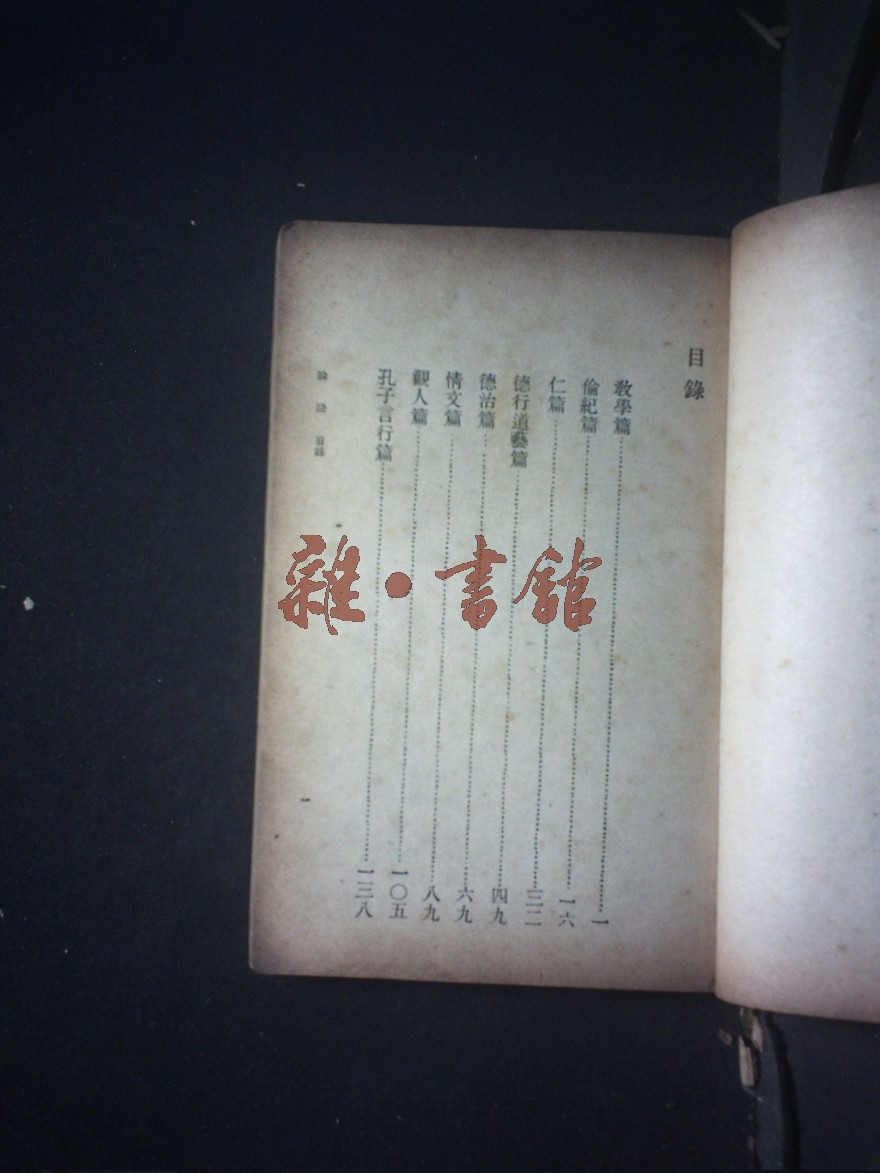 目錄
敎學篇一
倫紀篇一六
仁篇三二
德行道藝篇四九
德治篇六九
情文篇八九
觀人篇一〇五
孔子言行篇一三八
論語 目錄
一
雜•書館